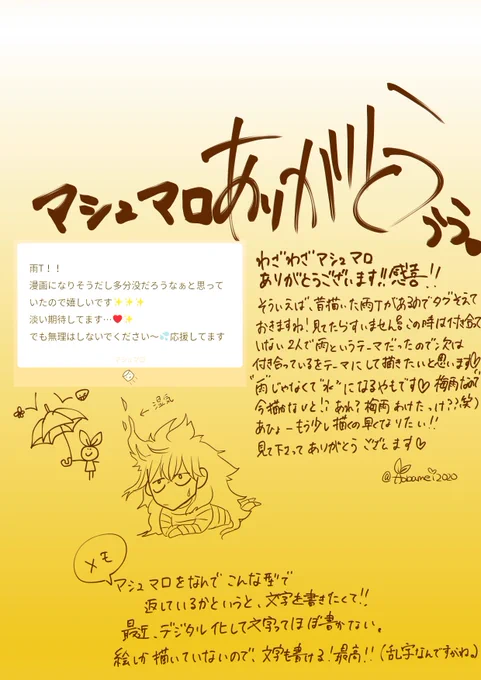 マシュマロありがとうぅぅ。
雨T!!
漫画になりそうだし多分没だろうなぁと思って
いたので嬉しいです✨✨✨
淡い期待してます…❤️✨
でも無理はしないでください〜💦応援してます
わざわざマシュマロ
ありがとうございます!!感喜!!
そういえば、昔描いた雨Tがある
おきますね!見てたらすいません この時は付き合って
いない2人で雨というテーマだったので次は
付き合っているをテーマにして描きたいと思います♡
"雨じゃなくて"水"になるやもです♡梅雨なので
今描かないと!?あれ?梅雨わけたっけ??(笑)
あひょーもう少し描くの早くなりたい!!
見て下さってありがとうございます♡
2020
←湿気
メモ
マシュマロをなんでこんな型で
返しているかというと、文字を書きたくて!!
最近、デジタル化して文字ってほぼ書かない。
絵しか描いていないので、文字を書ける!最高!!(乱字なんですがね)